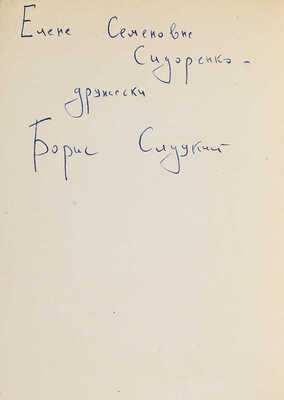 Елене Семеновне
Сидоренко –
дружески
Борис Слуцкий